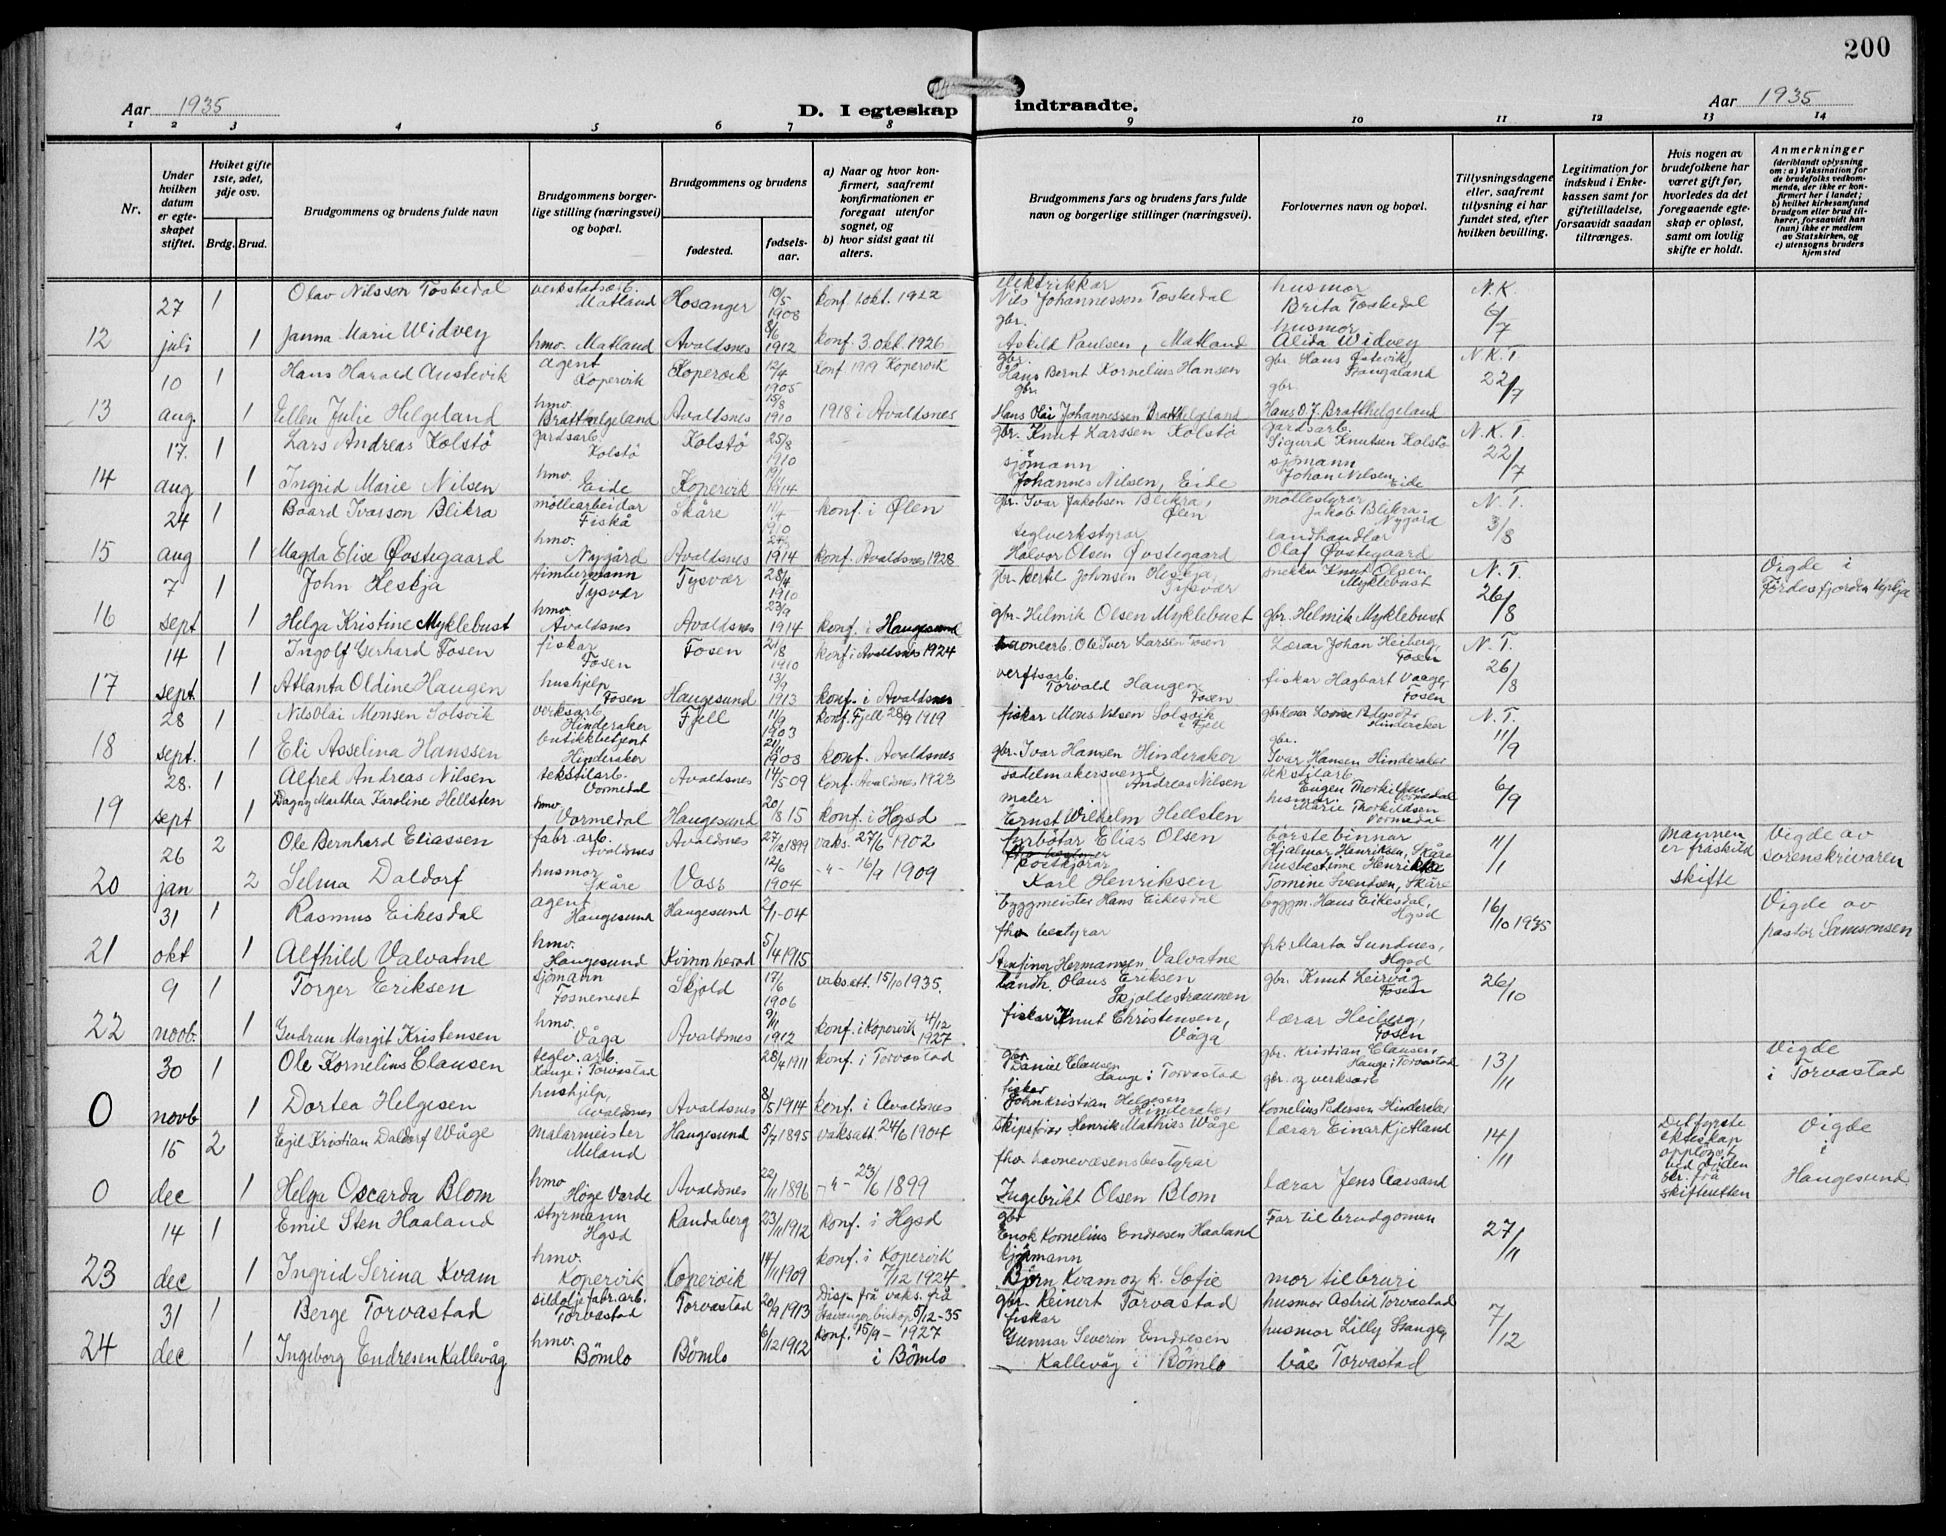 200
Aar 1935
D. I egteskap indtraadte.
Aar 1935
1 2 3 4 5 6 7 8 9 10 11 12 13 14
Nr.
Under hvilken datum er egteskapet stiftet.
Hvilket gifte 1ste, 2det, 3dje osv.
Brdg. Brud.
Brudgommens og brudens fulde navn
Brudgommens borgerlige stilling (næringsvei) og bopæl.
Brudgommens og brudens
fødested.
fødselsaar.
a) Naar og hvor konfirmert, saafremt konfirmationen er foregaat utenfor sognet, og
b) hvor sidst gaat til alters.
Brudgommens fars og brudens fars fulde navn og borgerlige stillinger (næringsvei).
Forlovernes navn og bopæl.
Tillysningsdagene eller, saafremt tillysning ei har fundet sted, efter hvilken bevilling.
Legitimation for indskud i Enkekassen samt for giftetilladelse, forsaavidt saadan tiltrænges.
Hvis nogen av brudefolkene har været gift før, hvorledes da det foregaaende egteskap er opløst, samt om lovlig skifte er holdt.
Anmerkninger
(deriblandt oplysning om: a) Vaksination for de brudefolks vedkommende, der ikke er konfirmert her i landet; b) hvilket kirkesamfund brudgom eller brud tilhører, forsaavidt han (hun) ikke er medlem av Statskirken, og c) utensogns bruders hjemsted
27 1 Olav Nilsson Toskedal verkstadsarb. Matland Hosanger 10/5 1908 konf. 1 okt. 1922 elektrikkar Nils Johannesson Toskedal husmor Brita Toskedal N.K. 6/7
12 juli 1 Janna Marie Widvey hmv. Matland Avaldsnes 8/6 1912 konf. 3. okt. 1926 gbr. Askild Paulsen, Matland husmor Alida Widvey
10 1 Hans Harald Austevik agent Kopervik Kopervik 12/4 1905 Konf 1919 Kopervik gbr. Hans Bernt Kornelius Hansen gbr. Hans Østevik, Stangaland N.K.T. 22/7
13 aug. 1 Ellen Julie Helgeland hmv. Bratthelgeland Avaldsnes 15/8 1910 1918 i Avaldsnes gbr. Hans Olai Johannessen Bratthelgeland gbr. Hans O. J. Bratthelgeland
17. 1 Lars Andreas Kolstø gardsarb. Kolstø Kolstø 25/8 1910 gbr. Knut Larssen Kolstø gardsarb. Sigurd Knutsen Kolstø N.K.T. 22/7
14 aug 1 Ingrid Marie Nilsen hmv. Eide Kopervik 19/11 1914 sjømann Johannes Nilsen, Eide sjømann Johan Nilsen Eide
24 1 Baard Ivarson Blikra møllearbeidar Fiskå Skåre 11/4 1910 konf. i Ølen gbr. Ivar Jakobsen Blikra, Ølen møllestyrar Jakob Blikra Nygård N.T. 3/8
15 aug 1 Magda Elise Øvstegaard hmv. Nygård Avaldsnes 1914 konf. Avaldsnes 1928 teglverkstyrar Halvor Olsen Øvstegaard landhandlar Olaf Øvstegaard
7 1 John Heskja timbermann Tysvær Tysvær 28/4 1910 gbr. Bertil Johnsen Heskja, Tysvær snekker Knut Olsen Myklebust N.T. 26/8 Vigde i Førdesfjorden kyrkja
16 sept 1 Helga Kristine Myklebust hmv. Avaldsnes Avaldsnes 23/9 1914 konf. i Haugesund gbr. Helmik Olsen Myklebust gbr. Helmik Myklebust
14 1 Ingolf Gerhard Fosen fiskar Fosen Fosen 21/8 1910 konf i Avaldsnes 1924 havnearb. Ole Iver Larsen Fosen Lærar Johan Heiberg, Fosen N.T. 26/8
17 sept 1 Atlanta Oldine Haugen hushjelp Fosen Haugesund 13/9 1913 konf. i Avaldsnes verftsarb. Torvald Haugen Fosen fiskar Hagbart Vaage, Fosen
28 1 Nils Olai Monsen Solsvik verksarb. Hinderaker Fjell 11/9 1903 konf. Fjell 28/9 1919 fiskar Mons Nilsen Solsvik i Fjell Hinderaker N.T. 11/9
18 sept. 1 Eli Asselina Hanssen butikkbetjent Hinderaker 21/11 1908 konf. Avaldsnes gbr. Ivar Hansen Hinderaker gbr. Ivar Hansen Hinderaker
28. 1 Alfred Andreas Nilsen tekstilarb. Vormedal Avaldsnes 14/5 09 konf. Avaldsnes 1923 sadelmakersvend Andreas Nilsen tekstilarb Eugen Thorkildsen Vormedal 6/9
19 sept 1 Dagny Marthea Karoline Hellsten hmv. Vormedal Haugesund 20/8 15 konf. i Hgsd maler Ernst Wilhelm Hellsten husmor Marie Thorkildsen Vormedal
26 2 Ole Bernhard Eliassen fabr. arb. Avaldsnes Avaldsnes 27/12 1899 vaks. 27/6 1902 fyrbøtar Elias Olsen børstebinnar Hjalmar Henriksen, Skåre 11/1 Mannen er fraskild Vigde av sorenskrivaren
20 jan 2 Selma Daldorf husmor Skåre Voss 12/6 1904 -"- 16/9 1909 postkjørar Karl Henriksen husbestinne Henrikke Tomine Svendsen, Skåre 1 skifte
31 1 Rasmus Eikesdal agent Haugesund Haugesund 2/1-04 byggmeister Hans Eikesdal byggm. Hans Eikesdal, Hgsd 16/10 1935 Vigde av pastor Samsonsen
21 okt 1 Alfhild Valvatne hmv. Haugesund Kvinnherad 5/4 1915 fhv. bestyrar Arnfinn Hermansen Valvatne frk Marta Sundnes, Hgsd
9 1 Torger Eriksen sjømann Fosneneset Skjold 17/6 1906 vaksatt. 15/10 1935. landh. Olaus Eriksen Skjoldestraumen gbr. Knut Leirvåg Fosen 26/10
22 novb. 1 Gudrun Margit Kristensen hmv. Våga Avaldsnes 9/11 1912 konf. i Kopervik 4/12 1927 fiskar Knut Christensen, Våga lærar Heiberg, Fosen
30 1 Ole Kornelius Clausen teglv. arb. Hauge i Torvastad 28/4 1911 konf. i Torvastad gbr Daniel Clausen Hauge i Torvastad gbr. Kristian Clausen, Hauge i Torvastad 13/11 Vigde i Torvastad
0 novb 1 Dortea Helgesen hushjelp, Avaldsnes Avaldsnes 8/5 1914 konf. i Avaldsnes fiskar John Kristian Helgesen Hinderaker gbr. og verksarb Kornelius Pedersen Hinderaker
15 2 Egil Kristian Daldorf Våge malarmeister Meland Haugesund 5/7 1895 vaksatt. 24/6 1904 skipsfører Henrik Mathias Våge lærar Einar Kjetland 14/11 Det fyrste ekteskap oppløyst ved døden ber. frå skifteretten Vigde i Haugesund.
0 dec 1 Helga Oscarda Blom hmv Høge Varde Avaldsnes 22/11 1896 -"- 23/6 1899 fhv. havnevæsensbestyrar Ingebrikt Olsen Blom lærar Jens Aarsand
14 1 Emil Sten Haaland styrmann Hgsd Randaberg 23/11 1912 konf. i Hgsd gbr Enok Kornelius Endresen Haaland Far til brudgomen 27/11
23 dec 1 Ingrid Serina Kvam hmv. Kopervik Kopervik 14/11 1909 konf. i Kopervik 7/12 1924 sjømann Bjørn Kvam og k. Sofie mor til bruri
31 1 Berge Torvastad sildoljefabr. arb. Torvastad Torvastad 20/9 1913 Disp. frå vaks. frå Stavanger biskop 5/12-35 gbr. Reinert Torvastad husmor Astrid Torvastad 7/12
24 dec 1 Ingeborg Endresen Kallevåg hmv. Bömlo Bömlo 6/12 1912 konf. 15/9 - 1927 i Bömlo fiskar Gunnar Severin Endresen Kallevåg i Bömlo husmor Lilly Stange, Torvastad